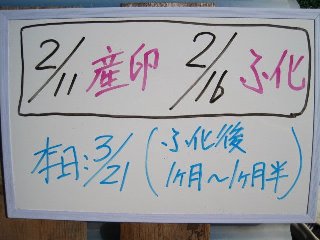 2/11 産卵 2/16 ふ化
本日:3/21 (ふ化後
1ヶ月～1ヶ月半)